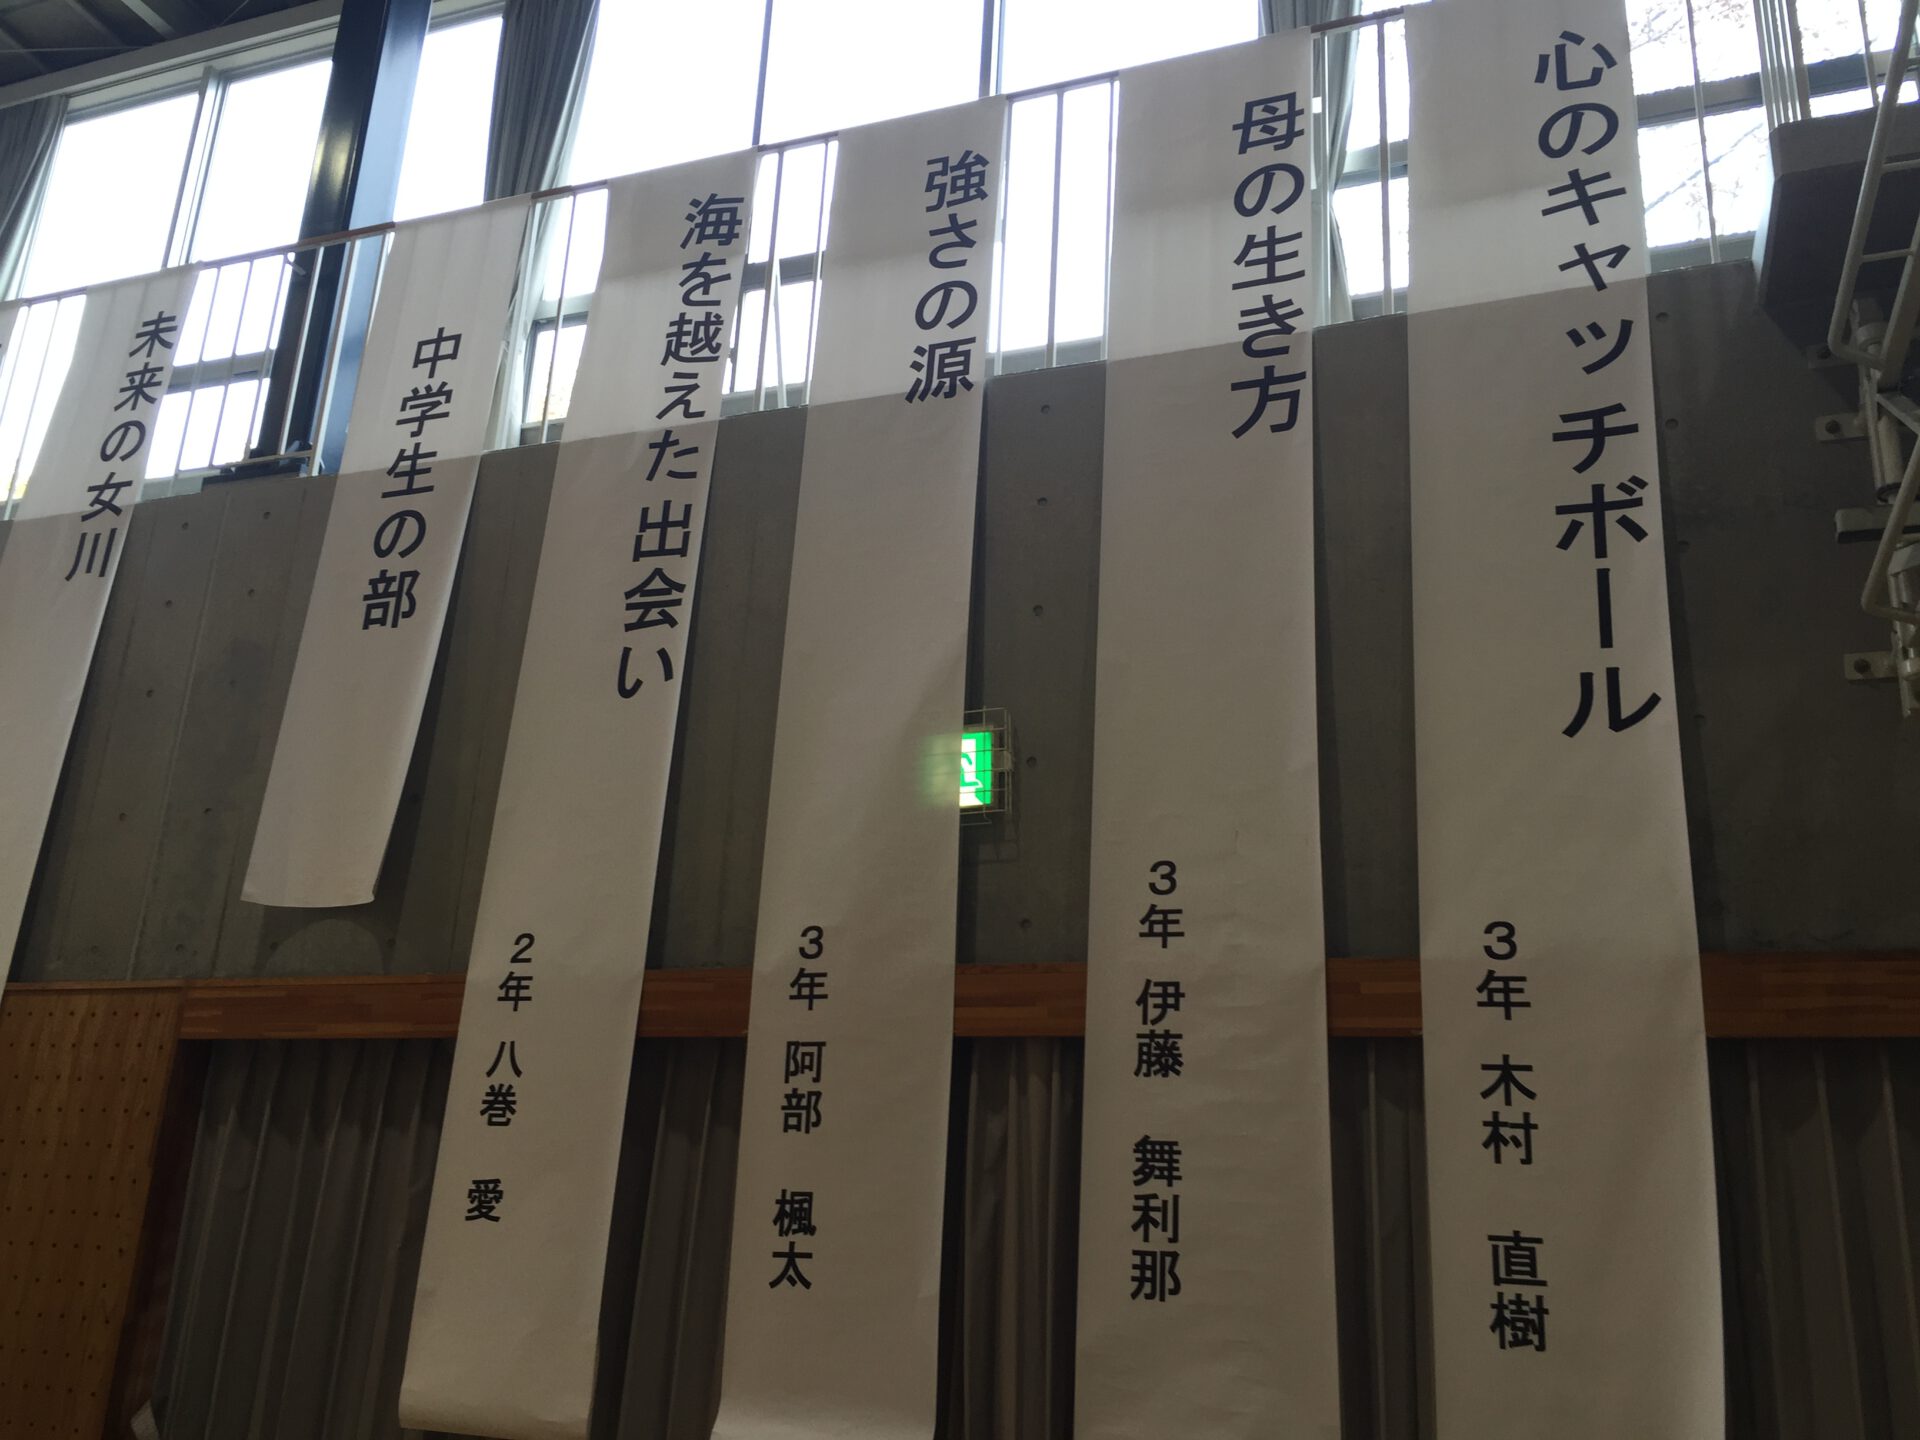 心のキャッチボール
3年 木村 直樹
母の生き方
3年 伊藤 舞利那
強さの源
3年 阿部 楓太
海を越えた出会い
2年 八巻 愛
中学生の部
未来の女川